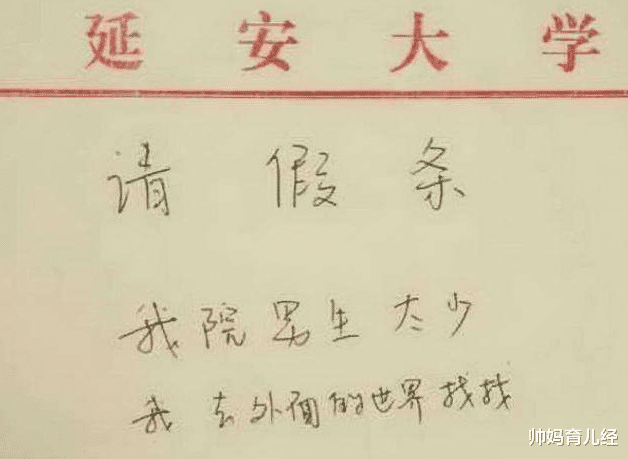 延安大学
请假条
我院男生太少
我去外面的世界找找
帅妈育儿经